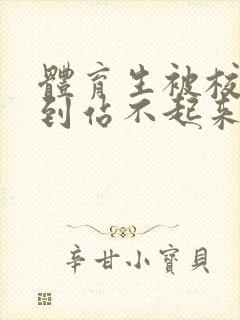 體育生被校
到佔不起來
辛甘小寶貝